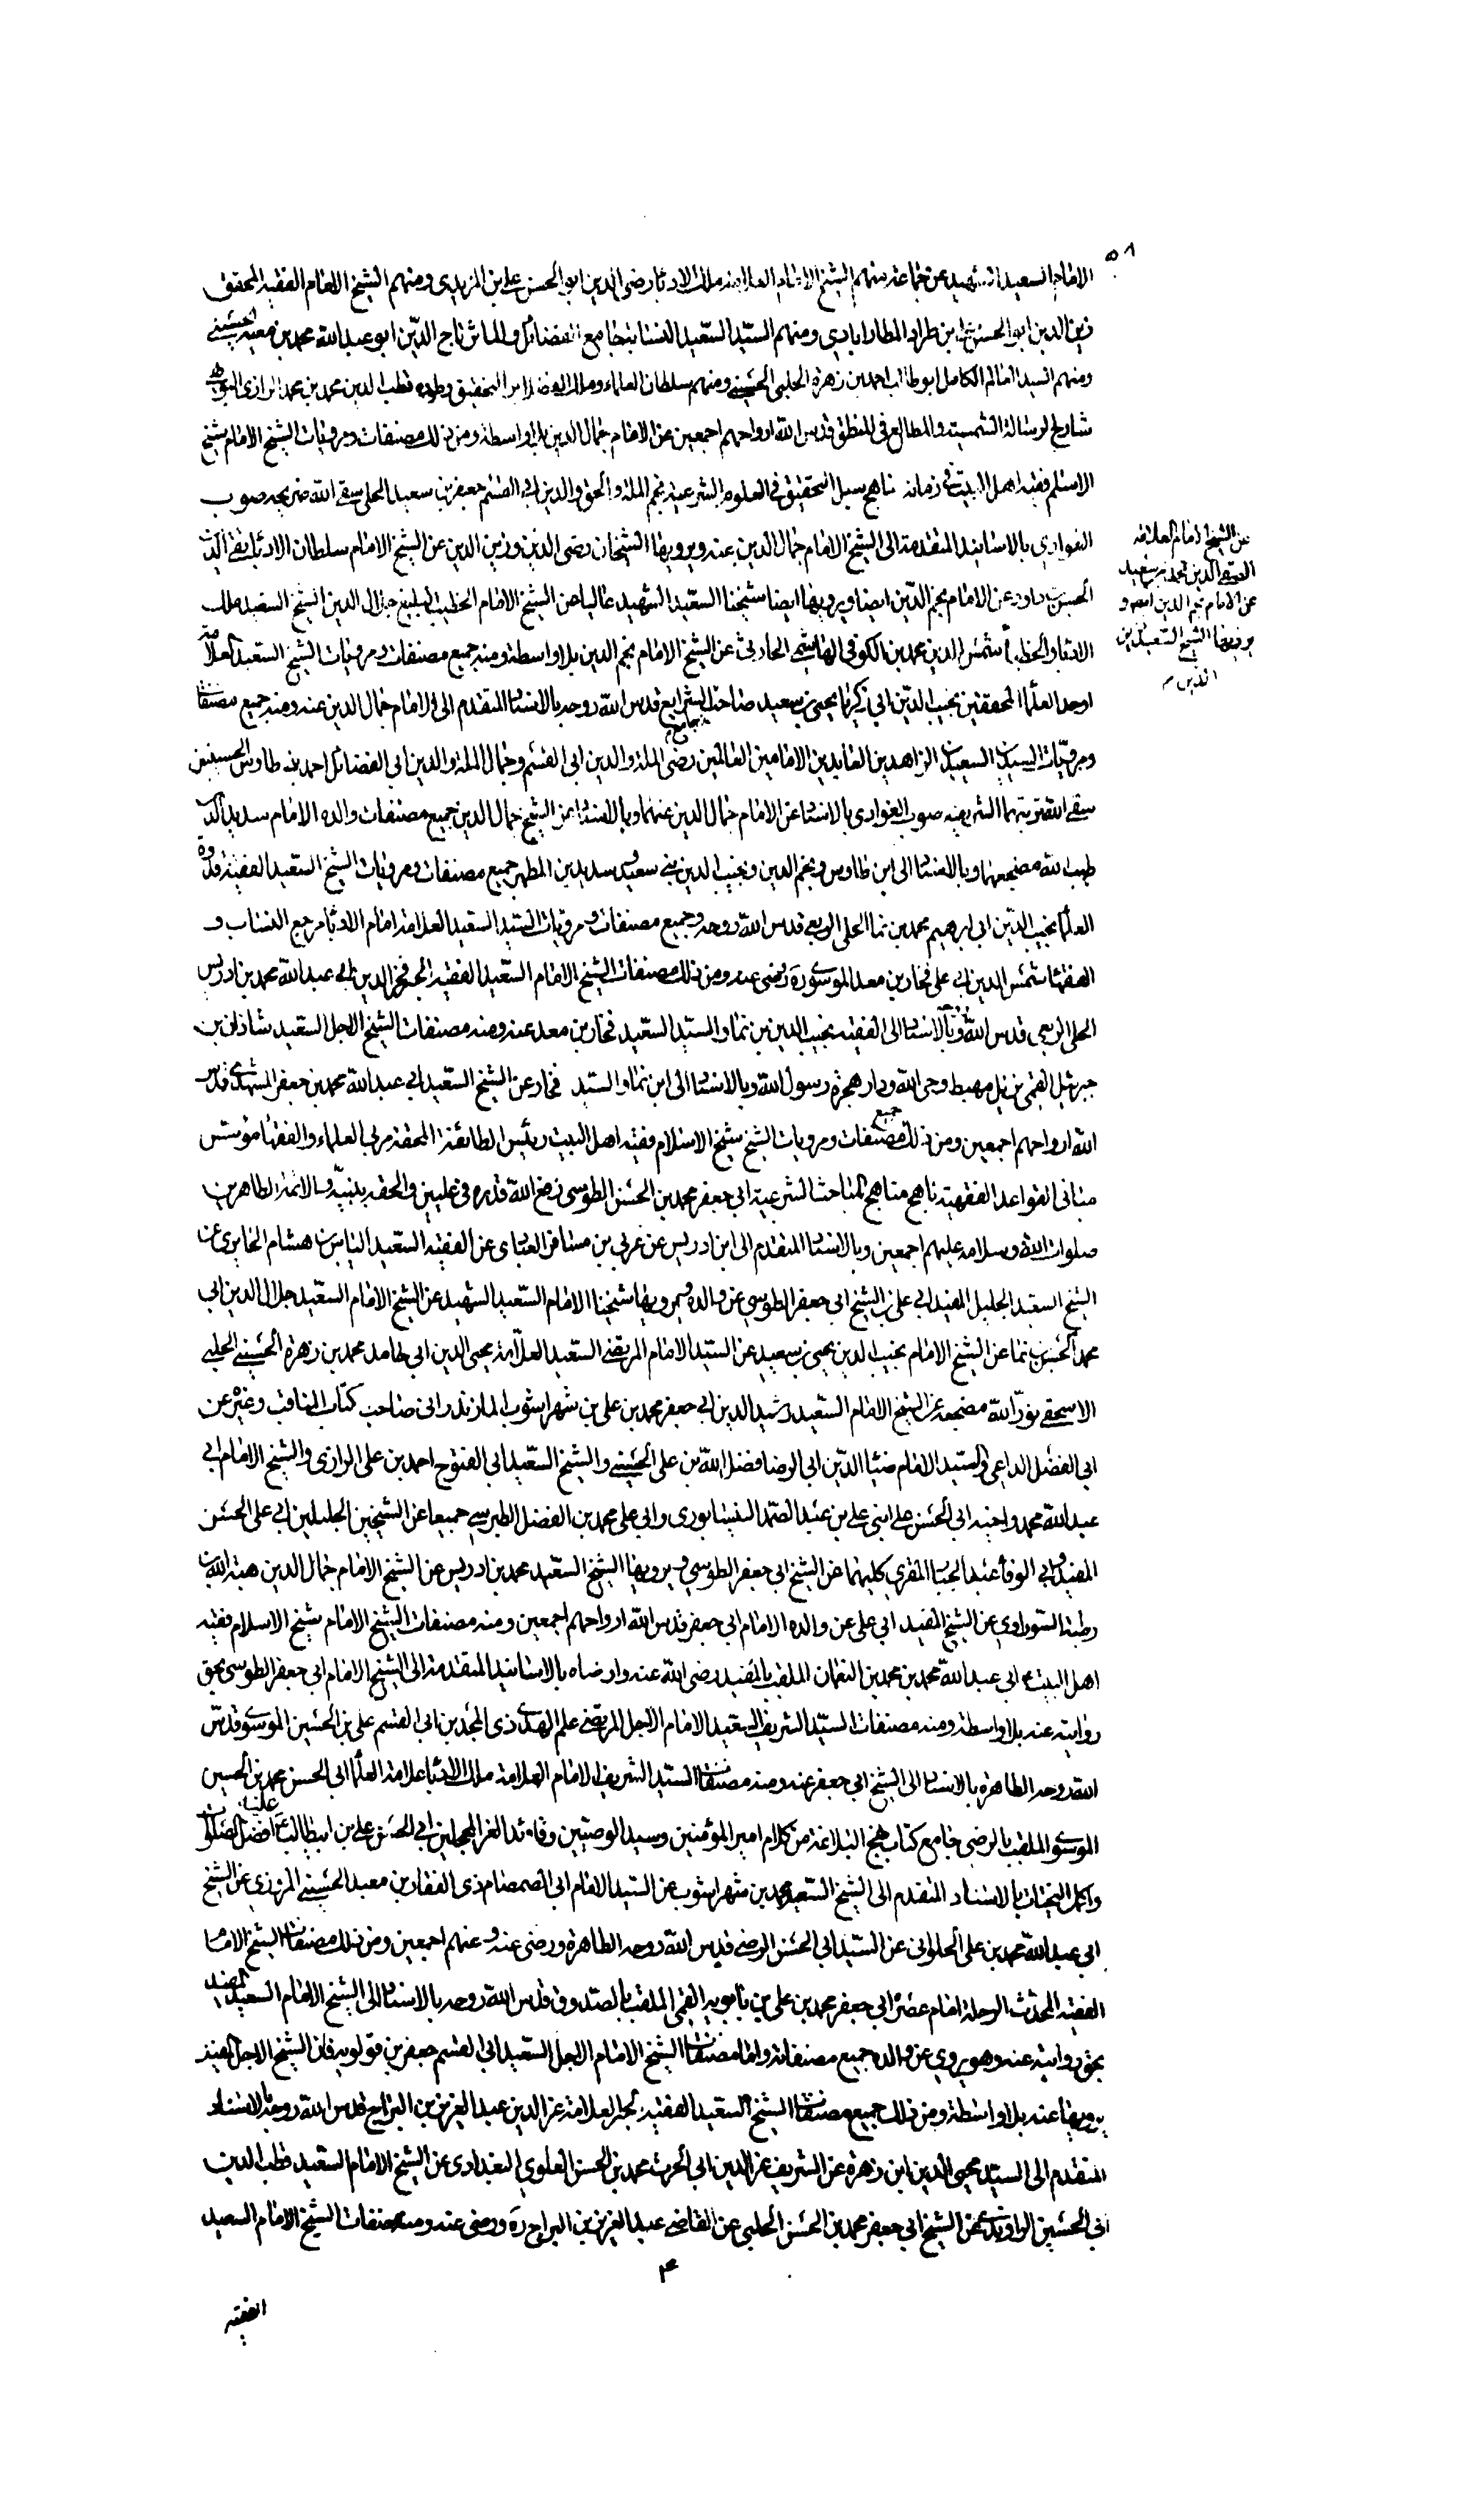 ٥٨
الامام السعيد الشهيد عن جماعة منهم الشيخ الامام العلامة ملك الادباء رضي الدين ابو الحسن علي بن المزيدي ومنهم الشيخ الامام الفقيه المحقق
زين الدين ابو الحسن علي بن طراد المطارابادي ومنهم السيد السعيد النسابة جامع الفضائل والمآثر تاج الدين ابو عبد الله محمد بن معية الحسيني
ومنهم السيد العالم الكامل ابو طالب احمد بن زهرة الحلبي الحسيني ومنهم سلطان العلماء وملك الفضلاء التحقيق وطوده قطب الدين محمد بن محمد الرازي البويهي
شارح الرسالة الشمسية والمطالع في المنطق قدس الله ارواحهم اجمعين عن الامام جمال الدين بلا واسطة ومن ذلك مصنفات ومرويات الشيخ الامام شيخ
الاسلام فقيه اهل البيت في زمانه ناهج سبل التحقيق في العلوم الشرعية نجم الملة والحق والدين ابي القسم جعفر بن سعيد الحلي سقى الله ضريحه صوب
الغوادي بالاسانيد المتقدمة الى الشيخ الامام جمال الدين عنه ويرويها الشيخان رضي الدين وزين الدين عن الشيخ الامام سلطان الادباء تقي الدين
الحسن بن داود عن الامام نجم الدين ايضا ويرويها ايضا شيخنا السعيد الشهيد عاليا عن الشيخ الامام الخطيب البليغ جلال الدين الشيخ السعيد ملك
الادباء والخطباء شمس الدين محمد بن الكوفي الهاشمي الحارثي عن الشيخ الامام نجم الدين بلا واسطة ومنه جميع مصنفات ومرويات الشيخ السعيد العلامة
اوحد العلماء المحققين نجيب الدين ابي زكريا يحيى بن سعيد صاحب جامع الشرايع قدس الله روحه بالاسناد المتقدم الى الامام جمال الدين عنه ومنه جميع مصنفات
ومرويات السيدين السعيدين الزاهدين العابدين الامامين العالمين رضي الملة والدين ابي القسم وجمال الملة والدين ابي الفضائل احمد بن طاوس الحسنيين
سقى الله تربتهما الشريفة صوب الغوادي بالاسناد عن الامام جمال الدين عنهما وبالاسناد عن الشيخ جمال الدين جميع مصنفات والده الامام سديد الدين
طيب الله مضجعهما وبالاسناد الى ابن طاوس ونجم الدين ونجيب الدين بني سعيد وسديد بن المطهر جميع مصنفات ومرويات الشيخ السعيد الفقيه قدوة
العلماء نجيب الدين ابي ابرهيم محمد بن نما الحلي الربعي قدس الله روحه وجميع مصنفات ومرويات السيد السعيد العلامة امام الادباء مرجع النساب و
الفقهاء شمس الدين ابي علي فخار بن معد الموسوي ره رضي عنه ومن ذلك مصنفات الشيخ الامام السعيد الفقيه الحبر فخر الدين ابي عبد الله محمد بن ادريس
الحلي الربعي قدس الله روحه بالاسناد الى الفقيه نجيب الدين بن نما والسيد السعيد فخار بن معد عنه ومنه مصنفات الشيخ الاجل السعيد شاذان بن
جبرئيل القمي نزيل مهبط وحي الله ودار هجرة رسول الله وبالاسناد الى ابن نما والسيد فخار عن الشيخ السعيد ابي عبد الله محمد بن جعفر المشهدي قدس
الله ارواحهم اجمعين ومن ذلك جميع مصنفات ومرويات الشيخ شيخ الاسلام فقيه اهل البيت رئيس الطائفة المحقة مربي العلماء والفقهاء مؤسس
مباني القواعد الفقهية ناهج مناهج المباحث الشرعية ابي جعفر محمد بن الحسن الطوسي رفع الله قدره في عليين والحقه بنبيه والائمة الطاهرين
صلوات الله وسلامه عليهم اجمعين وبالاسناد المتقدم الى ابن ادريس عن عربي بن مسافر العبادي عن الفقيه السعيد الياس بن هشام الحايري عن
الشيخ السعيد الجليل المفيد ابي علي بن الشيخ ابي جعفر الطوسي عن والده ويرويها شيخنا الامام السعيد الشهيد عن الشيخ الامام السعيد جلال الدين ابي
محمد الحسن بن نما عن الشيخ الامام نجيب الدين يحيى بن سعيد عن السيد الامام المرتضى السعيد العلامة محيي الدين ابي حامد محمد بن زهرة الحسيني الحلبي
الاسحقي نور الله مضجعه عن الشيخ الامام السعيد رشيد الدين ابي جعفر محمد بن علي بن شهراشوب المازندراني صاحب كتاب المناقب وغيره عن
ابي الفضل الداعي والسيد الامام ضياء الدين ابي الرضا فضل الله بن علي الحسيني والشيخ السعيد ابي الفتوح احمد بن علي الرازي والشيخ الامام ابي
عبد الله محمد واخيه ابي الحسن علي ابني علي بن عبد الصمد النيسابوري وابي علي محمد بن الفضل الطبرسي جميعا عن الشيخين الجليلين ابي علي الحسن
المفيد وابي الوفاء عبد الجبار المقري كليهما عن الشيخ ابي جعفر الطوسي ويرويها الشيخ السعيد محمد بن ادريس عن الشيخ الامام جمال الدين هبة الله بن
رطبة السوراوي عن الشيخ المفيد ابي علي عن والده الامام ابي جعفر قدس الله ارواحهم اجمعين ومنه مصنفات الشيخ الامام شيخ الاسلام فقيه
اهل البيت ابي عبد الله محمد بن محمد بن النعمان الملقب بالمفيد رضي الله عنه وارضاه بالاسانيد المتقدمة الى الشيخ الامام ابي جعفر الطوسي بحق
روايته عنه بلا واسطة ومنه مصنفات السيد الشريف السعيد الامام الاجل المرتضى علم الهدى ذي المجدين ابي القسم علي بن الحسين الموسوي قدس
الله روحه الطاهرة بالاسناد الى الشيخ ابي جعفر عنه ومنه مصنفات السيد الشريف الامام العلامة ملك الادباء علامة العلماء ابي الحسن محمد بن الحسين
الموسوي الملقب بالرضي جامع كتاب نهج البلاغة من كلام امير المؤمنين وسيد الوصيين وقائد الغر المحجلين ابي الحسن علي بن ابيطالب عليه افضل الصلوات
واكمل التحيات بالاسناد المتقدم الى الشيخ السعيد محمد بن شهراشوب عن السيد الامام ابي الصمصام ذي الفقار بن معبد الحسيني المروزي عن الشيخ
ابي عبد الله محمد بن علي الحلواني عن السيد ابي الحسن الرضي قدس الله روحه الطاهرة ورضي عنه وعنهم اجمعين ومن ذلك مصنفات الشيخ الامام
الفقيه المحدث الرحلة امام عصره ابي جعفر محمد بن علي بن بابويه القمي الملقب بالصدوق قدس الله روحه بالاسناد الى الشيخ الامام السعيد المفيد
بحق روايته عنه وهو يروي عن والده جميع مصنفاته واما مصنفات الشيخ الامام الاجل السعيد ابي القسم جعفر بن قولويه فان الشيخ الاجل المفيد
يرويها عنه بلا واسطة ومن ذلك جميع مصنفات الشيخ السعيد الفقيه الحبر العلامة عز الدين عبد العزيز بن البراج قدس الله روحه بالاسناد
المتقدم الى السيد محيي الدين ابن زهرة عن الشريف عز الدين ابي الحرث محمد بن الحسن العلوي البغدادي عن الشيخ الامام السعيد قطب الدين
ابي الحسين الراوندي عن الشيخ ابي جعفر محمد بن الحسن الحلبي عن القاضي عبد العزيز بن البراج ره ورضي عنه ومنه مصنفات الشيخ الامام السعيد
الفقيه
عن الشيخ الامام العلامة
الدين محمد بن سعيد
عن الامام نجم الدين
الشيخ السعيد